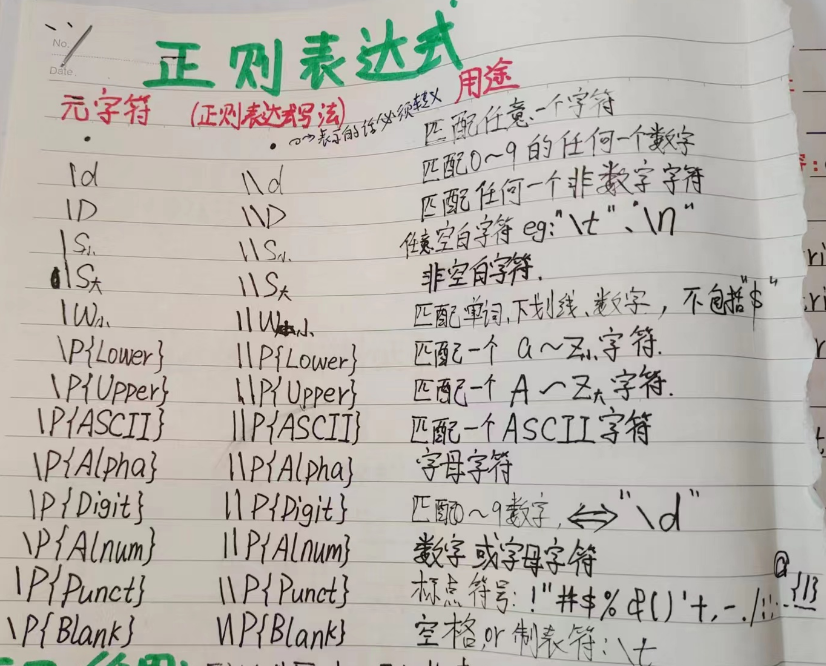 No.
Date.
正则表达式
元字符 (正则表达式写法) 用途
. . 表示的话必须转义 匹配任意一个字符
\d \\d 匹配0~9的任何一个数字
\D \\D 匹配任何一个非数字字符
\S小 \\S小 任意空白字符 eg:"\t"、"\n"
\S大 \\S大 非空白字符.
\W小 \\W小 匹配单词、下划线、数字，不包括"$"
\P{Lower} \\P{Lower} 匹配一个 a~z小字符.
\P{Upper} \\P{Upper} 匹配一个 A~Z大字符.
\P{ASCII} \\P{ASCII} 匹配一个ASCII字符
\P{Alpha} \\P{Alpha} 字母字符
\P{Digit} \\P{Digit} 匹配0~9数字, ⇔"\d"
\P{Alnum} \\P{Alnum} 数字或字母字符
\P{Punct} \\P{Punct} 标点符号: !"#$%&()'+,-./:; @ {|}
\P{Blank} \\P{Blank} 空格,or 制表符:\t